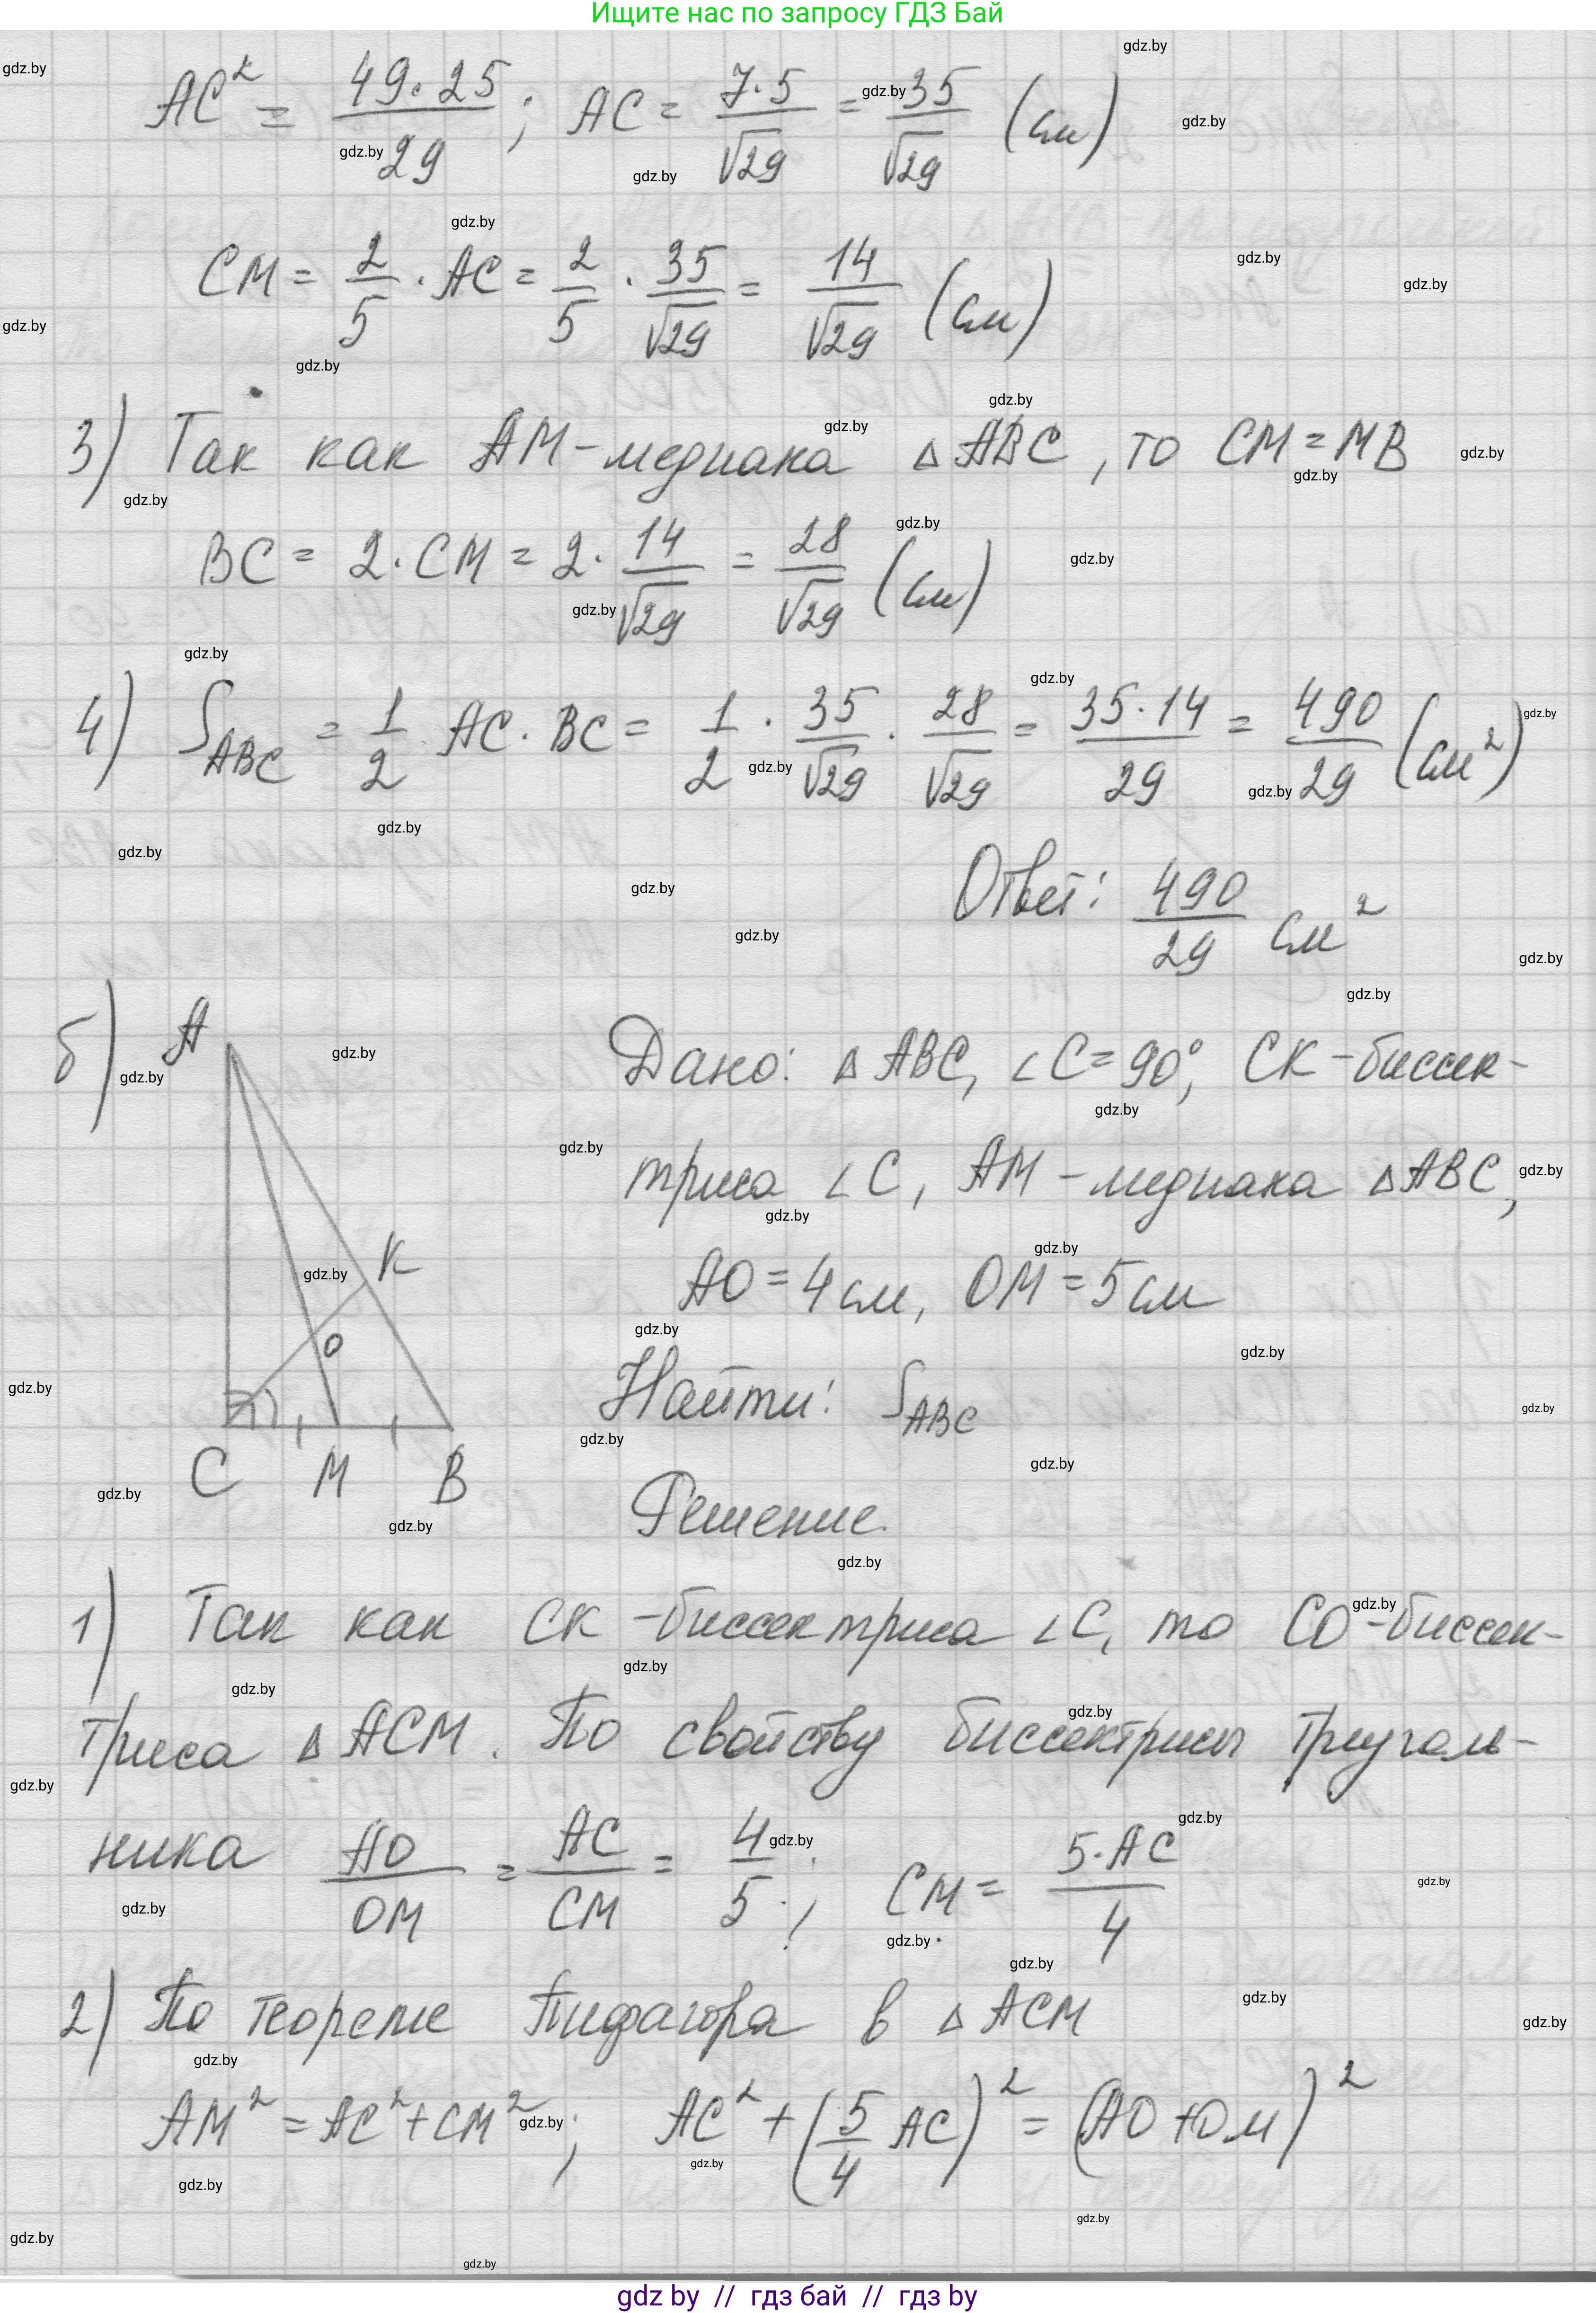 Ищите нас по запросу ГДЗ Бай
AC² = 49·25/29; AC = 7·5/√29 = 35/√29 (см)
CM = 2/5 · AC = 2/5 · 35/√29 = 14/√29 (см)
3) Так как AM-медиана △ABC, то CM = MB
BC = 2·CM = 2· 14/√29 = 28/√29 (см)
4) S_ABC = 1/2 AC·BC = 1/2 · 35/√29 · 28/√29 = 35·14/29 = 490/29 (см²)
Ответ: 490/29 см²
б)
A
K
O
C M B
Дано: △ABC, ∠C=90°, CK-биссек-
триса ∠C, AM-медиана △ABC,
AO = 4 см, OM = 5 см
Найти: S_ABC
Решение.
1) Так как CK-биссектриса ∠C, то CO-биссек-
триса △ACM. По свойству биссектрисы треуголь-
ника AO/OM = AC/CM = 4/5; CM = 5·AC/4
2) По теореме Пифагора в △ACM
AM² = AC² + CM²; AC² + (5/4 AC)² = (AO + OM)²
gdz by // гдз бай // гдз by